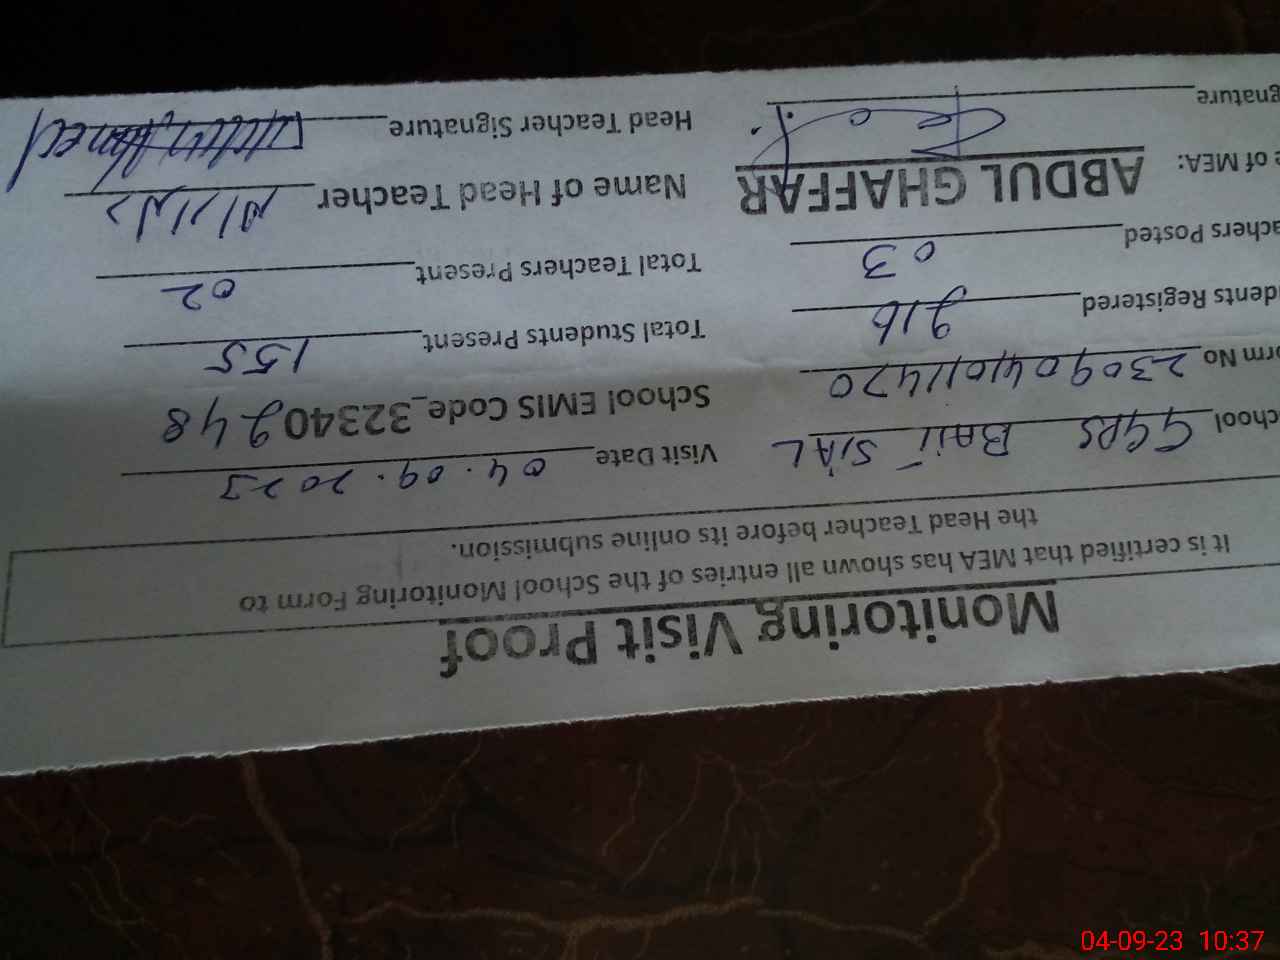 Monitoring Visit Proof
It is certified that MEA has shown all entries of the School Monitoring Form to
the Head Teacher before its online submission.
chool GGPS BAIT SIAL Visit Date 04.09.2023
orm No 2309041011420 School EMIS Code_32340248
dents Registered 216 Total Students Present 155
achers Posted 03 Total Teachers Present 02
e of MEA: ABDUL GHAFFAR Name of Head Teacher
gnature Head Teacher Signature
04-09-23 10:37